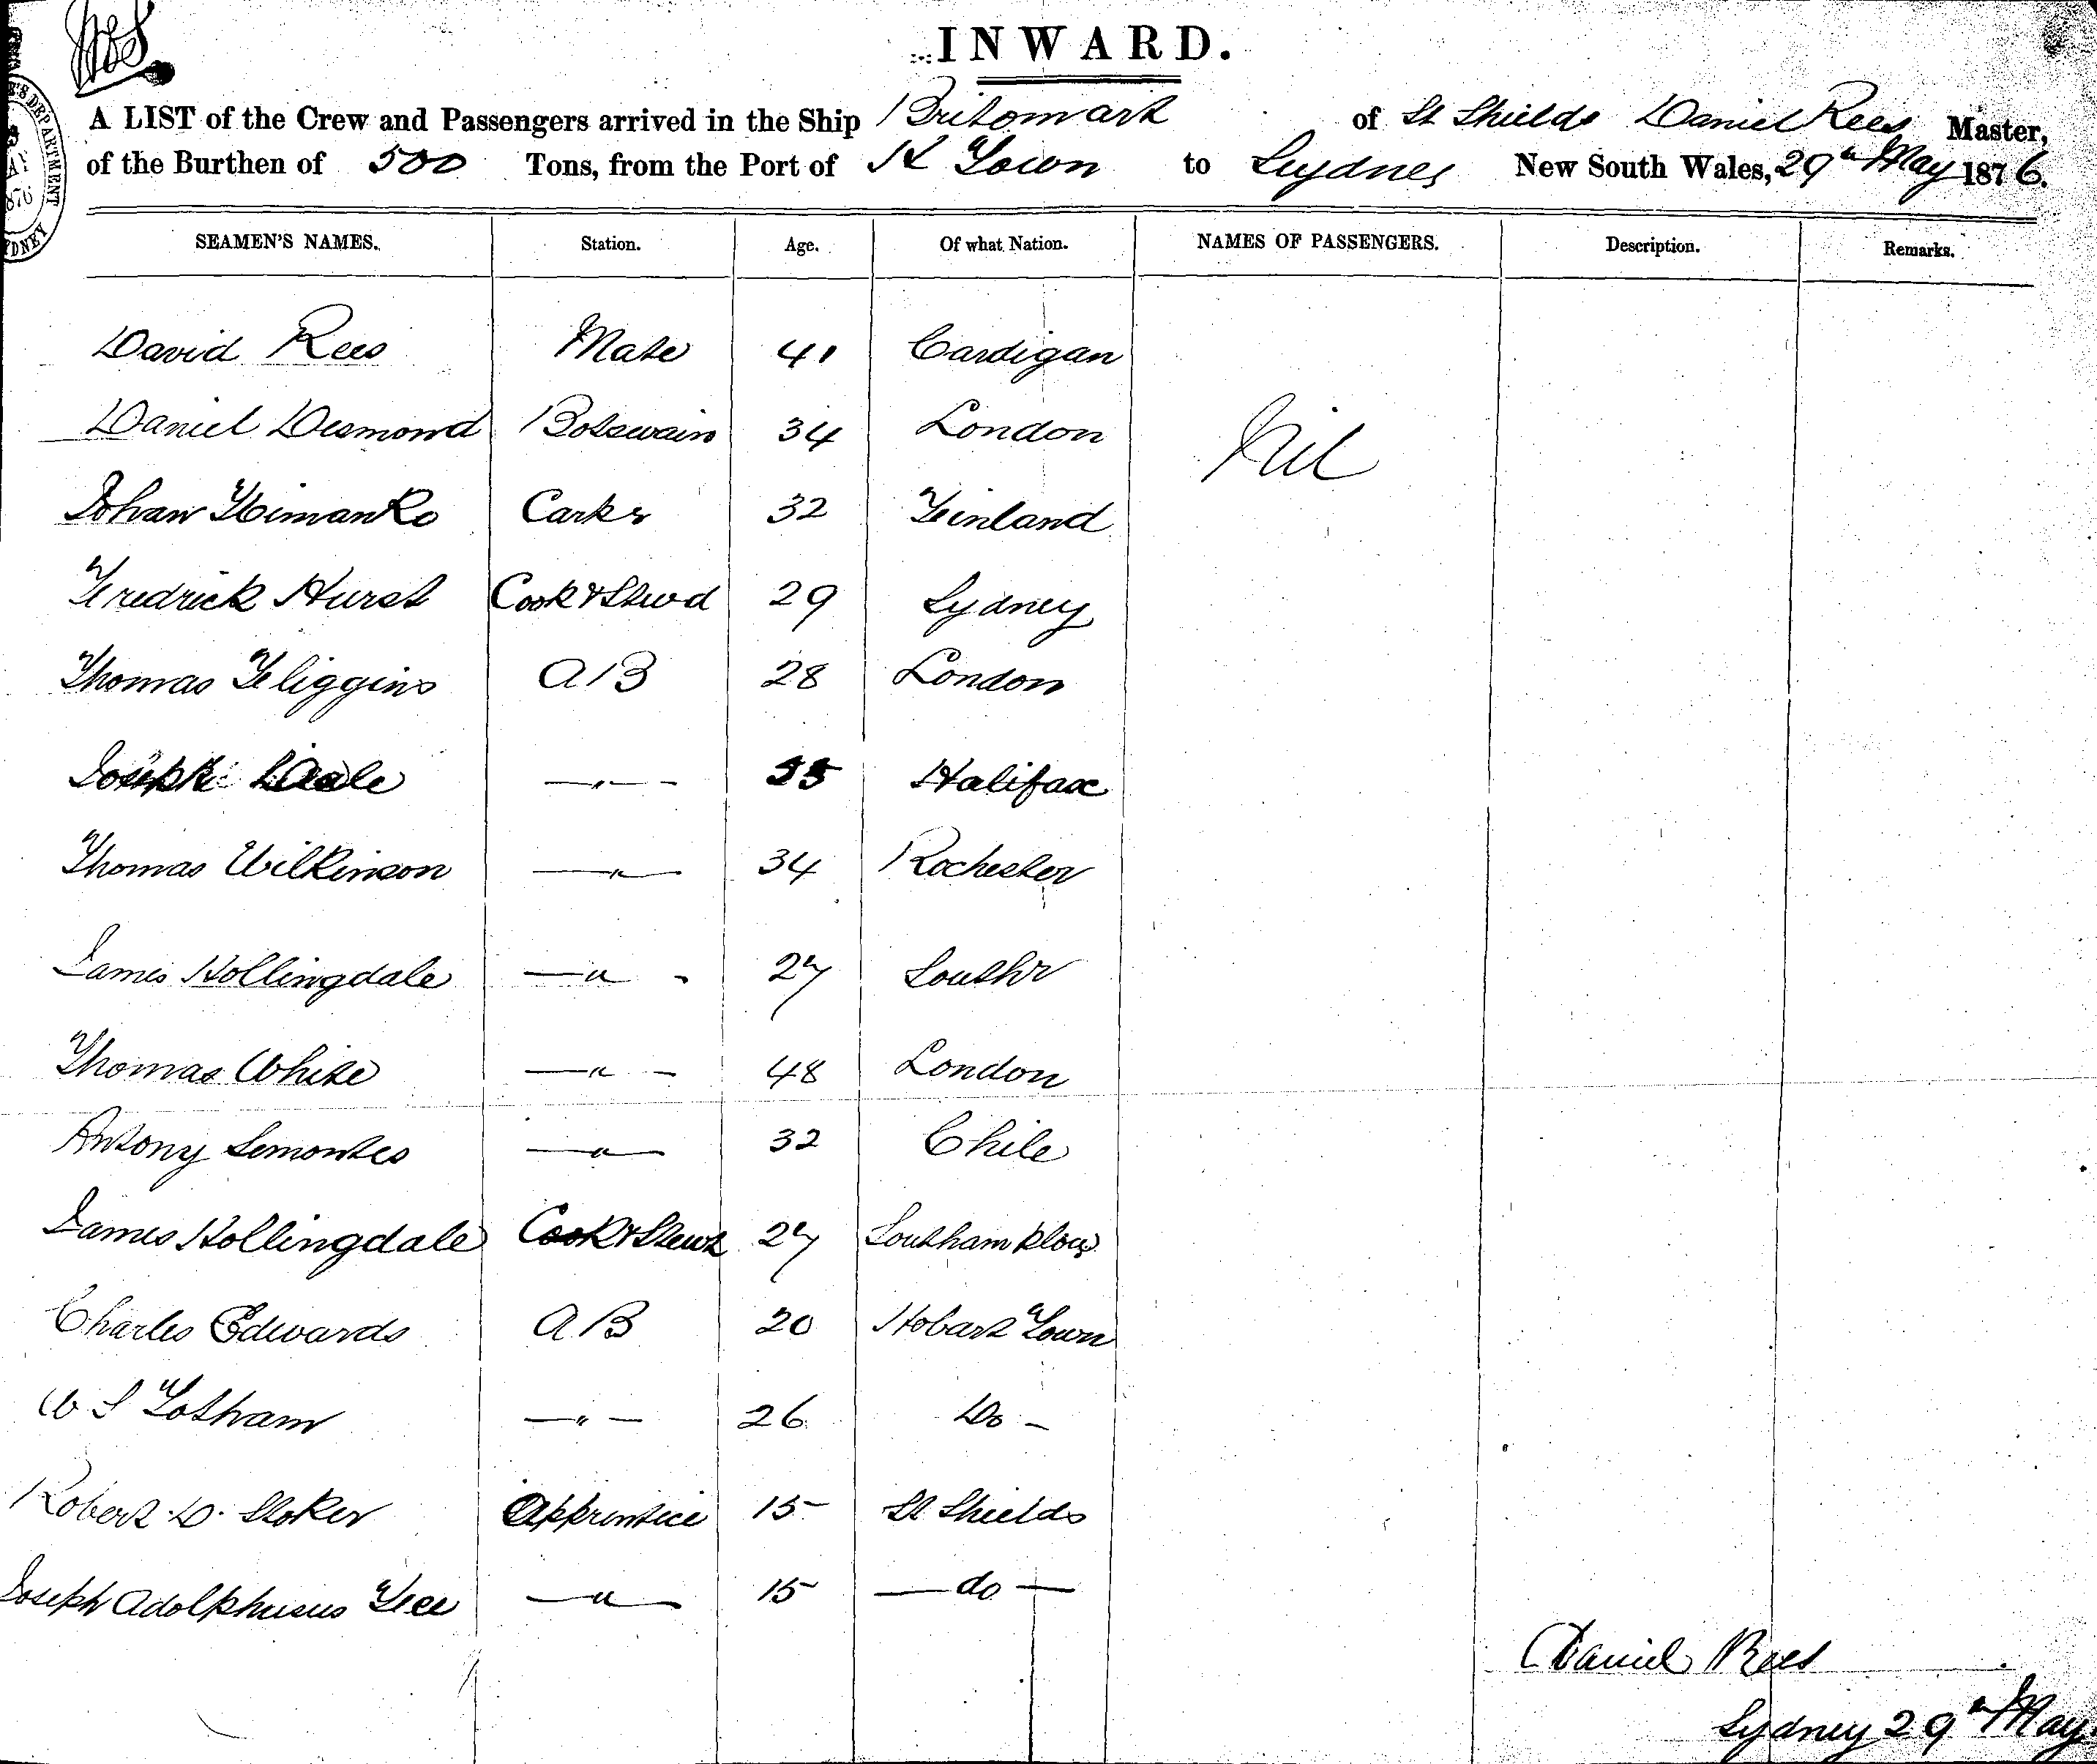 INWARD.
A LIST of the Crew and Passengers arrived in the Ship Britomart of St Shields Daniel Rees Master,
of the Burthen of 500 Tons, from the Port of H Town to Sydney New South Wales, 29th May 1876.
SEAMEN'S NAMES. Station. Age. Of what Nation. NAMES OF PASSENGERS. Description. Remarks.
David Rees Mate 41 Cardigan
Daniel Desmond Botswain 34 London Nil
Johan Heimanko Cark 32 Finland
Fredrick Hurst Cook & Stewd 29 Sydney
Thomas Fliggins AB 28 London
Joseph —"— Halifax
Thomas Wilkinson —"— 34 Rochester
James Hollingdale —"— 27
Thomas White —"— 48 London
Antony Semontes —"— 32 Chile
James Hollingdale Cook & Stewd 27
Charles Edwards AB 20 Hobart Town
W S Totham —"— 26 Do -
Robert D. Stoker Apprentice 15 St Shields
Joseph Adolphusus —"— 15 — do —
Daniel Rees
Sydney 29th May